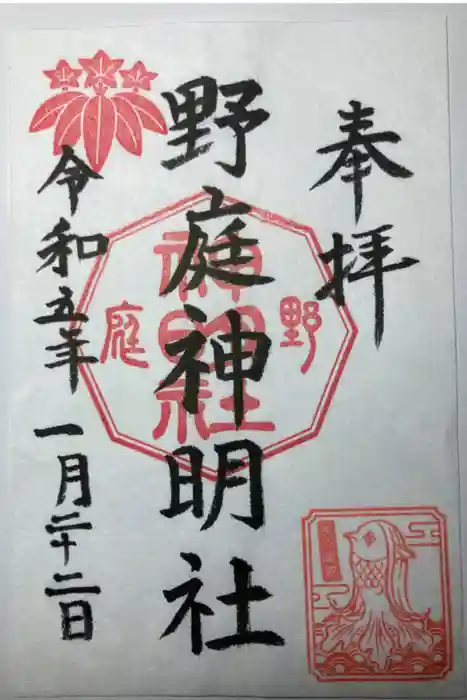 奉拝
野庭神明社
令和五年一月二十二日
野
神明社
庭